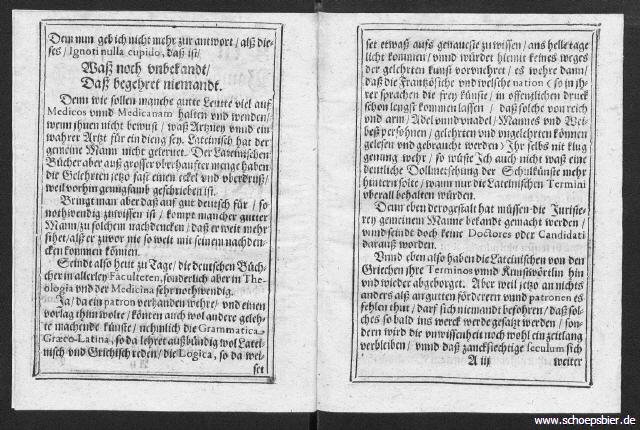 Dem nun geb ich nicht mehr zur antwort / alß die-
ses / Ignoti nulla cupido, daß ist /
Waß noch vnbekandt /
Daß begehret niemandt.
Denn wie sollen manche gute Leutte viel auf
Medicos vnnd Medicamam halten vnd wenden /
wenn jhnen nicht bewust / waß Artzney vnnd ein
wahrer Artzt für ein dieng sey. Lateinisch hat der
gemeine Mann nicht gelernet. Der Lateinischen
Bücher aber auß grosser vberhauffter menge haben
die Gelehrten jetzo fast einen eckel vnd vberdruß /
weil vorhin genugsamb geschrieben ist.
Bringt man aber daß auf gut deutsch für / so
nothwendig zuwissen ist / kompt mancher gutter
Mann / zu solchem nachdencken / daß er weit mehr
sihet / alß er zuvor nie so weit mit seinen nachden-
cken kommen können.
Seindt also heut zu Tage / die deutschen Büch-
cher in allerley Faculteten, sonderlich aber in The-
ologia vnd der Medicina sehr nothwendig.
Ja / da ein patron verhanden wehre / vnd einen
vorlag thun wolte / könten auch wol andere geleh-
te machende künste / nehmlich die Grammatica
Græco-Latina, so da lehret außbündig wol Latei-
nisch vnd Grichisch reden / die Logica, so da wei-
set
set etwaß aufs genaueste zu wissen / ans helle tage
licht kommen / vnnd würdet hiemit keines weges
der gelehrten kunst vorwehret / es wehre dann /
daß die Frantzösiche vnd welsche nation (so in jh-
rer sprachen die frey künste / in offentlichen druck
schon lengst kommen lassen / daß solche von reich
vnd arm / Adel vnnd vnadel / Mannes vnd Wei-
beß persohnen / gelehrten vnd vngelehrten können
gelesen vnd gebraucht werden) Jhr selbs nit klug
genung wehr / so wüste Ich auch nicht waß eine
deutliche Dollmetschung der Schulkünste mehr
hintern solte / wann nur die Lateinischen Termini
vberall behalten würden.
Denn eben derogestalt hat müssen die Juriste-
rey gemeinem Manne bekandt gemacht werden /
vnnd seindt doch keine Doctores oder Candidati
darauß worden.
Vnnd eben also haben die Lateinischen von den
Griechen jhre Terminos vnnd Kunstwörtlin hin
vnd wieder abgeborget. Aber weil jetzo an nichts
anders alß an gutten förderern vnnd patronen es
fehlen thut / darf sich niemandt befohren / daß sol-
ches so bald ins werck werde gesatzt werden / son-
dern wird die vnwissenheit noch wohl ein zeitlang
verbleiben / vnnd daß zancksiechtige seculum sich
A iij weiter
www.schoepsbier.de